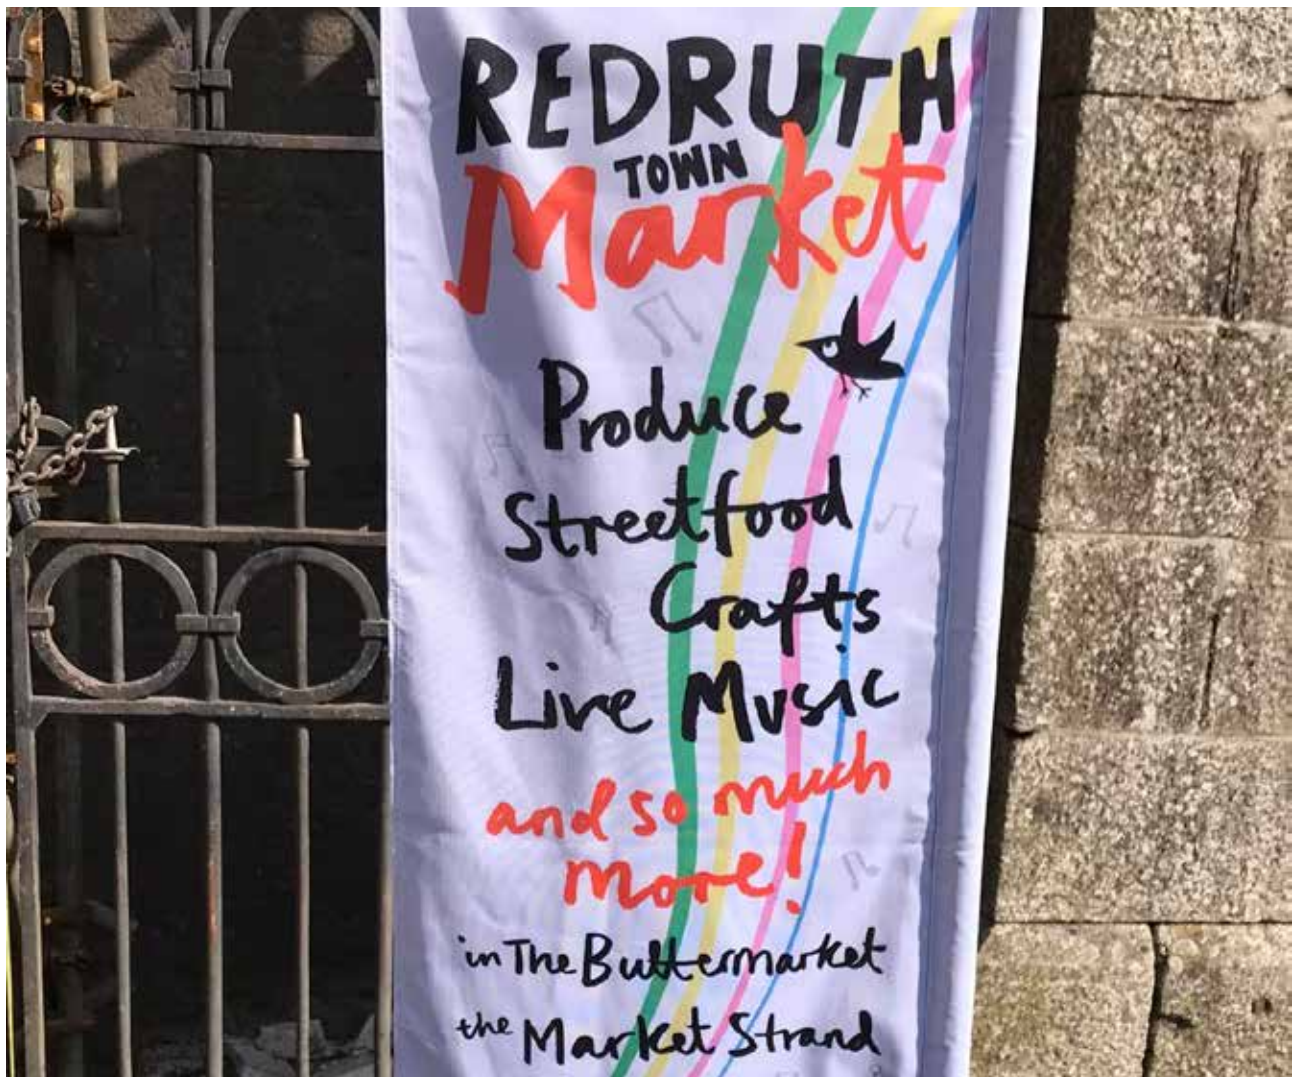 REDRUTH
TOWN
Market
Produce
Streetfood
Crafts
Live Music
and so much
more!
in The Buttermarket
the Market Strand